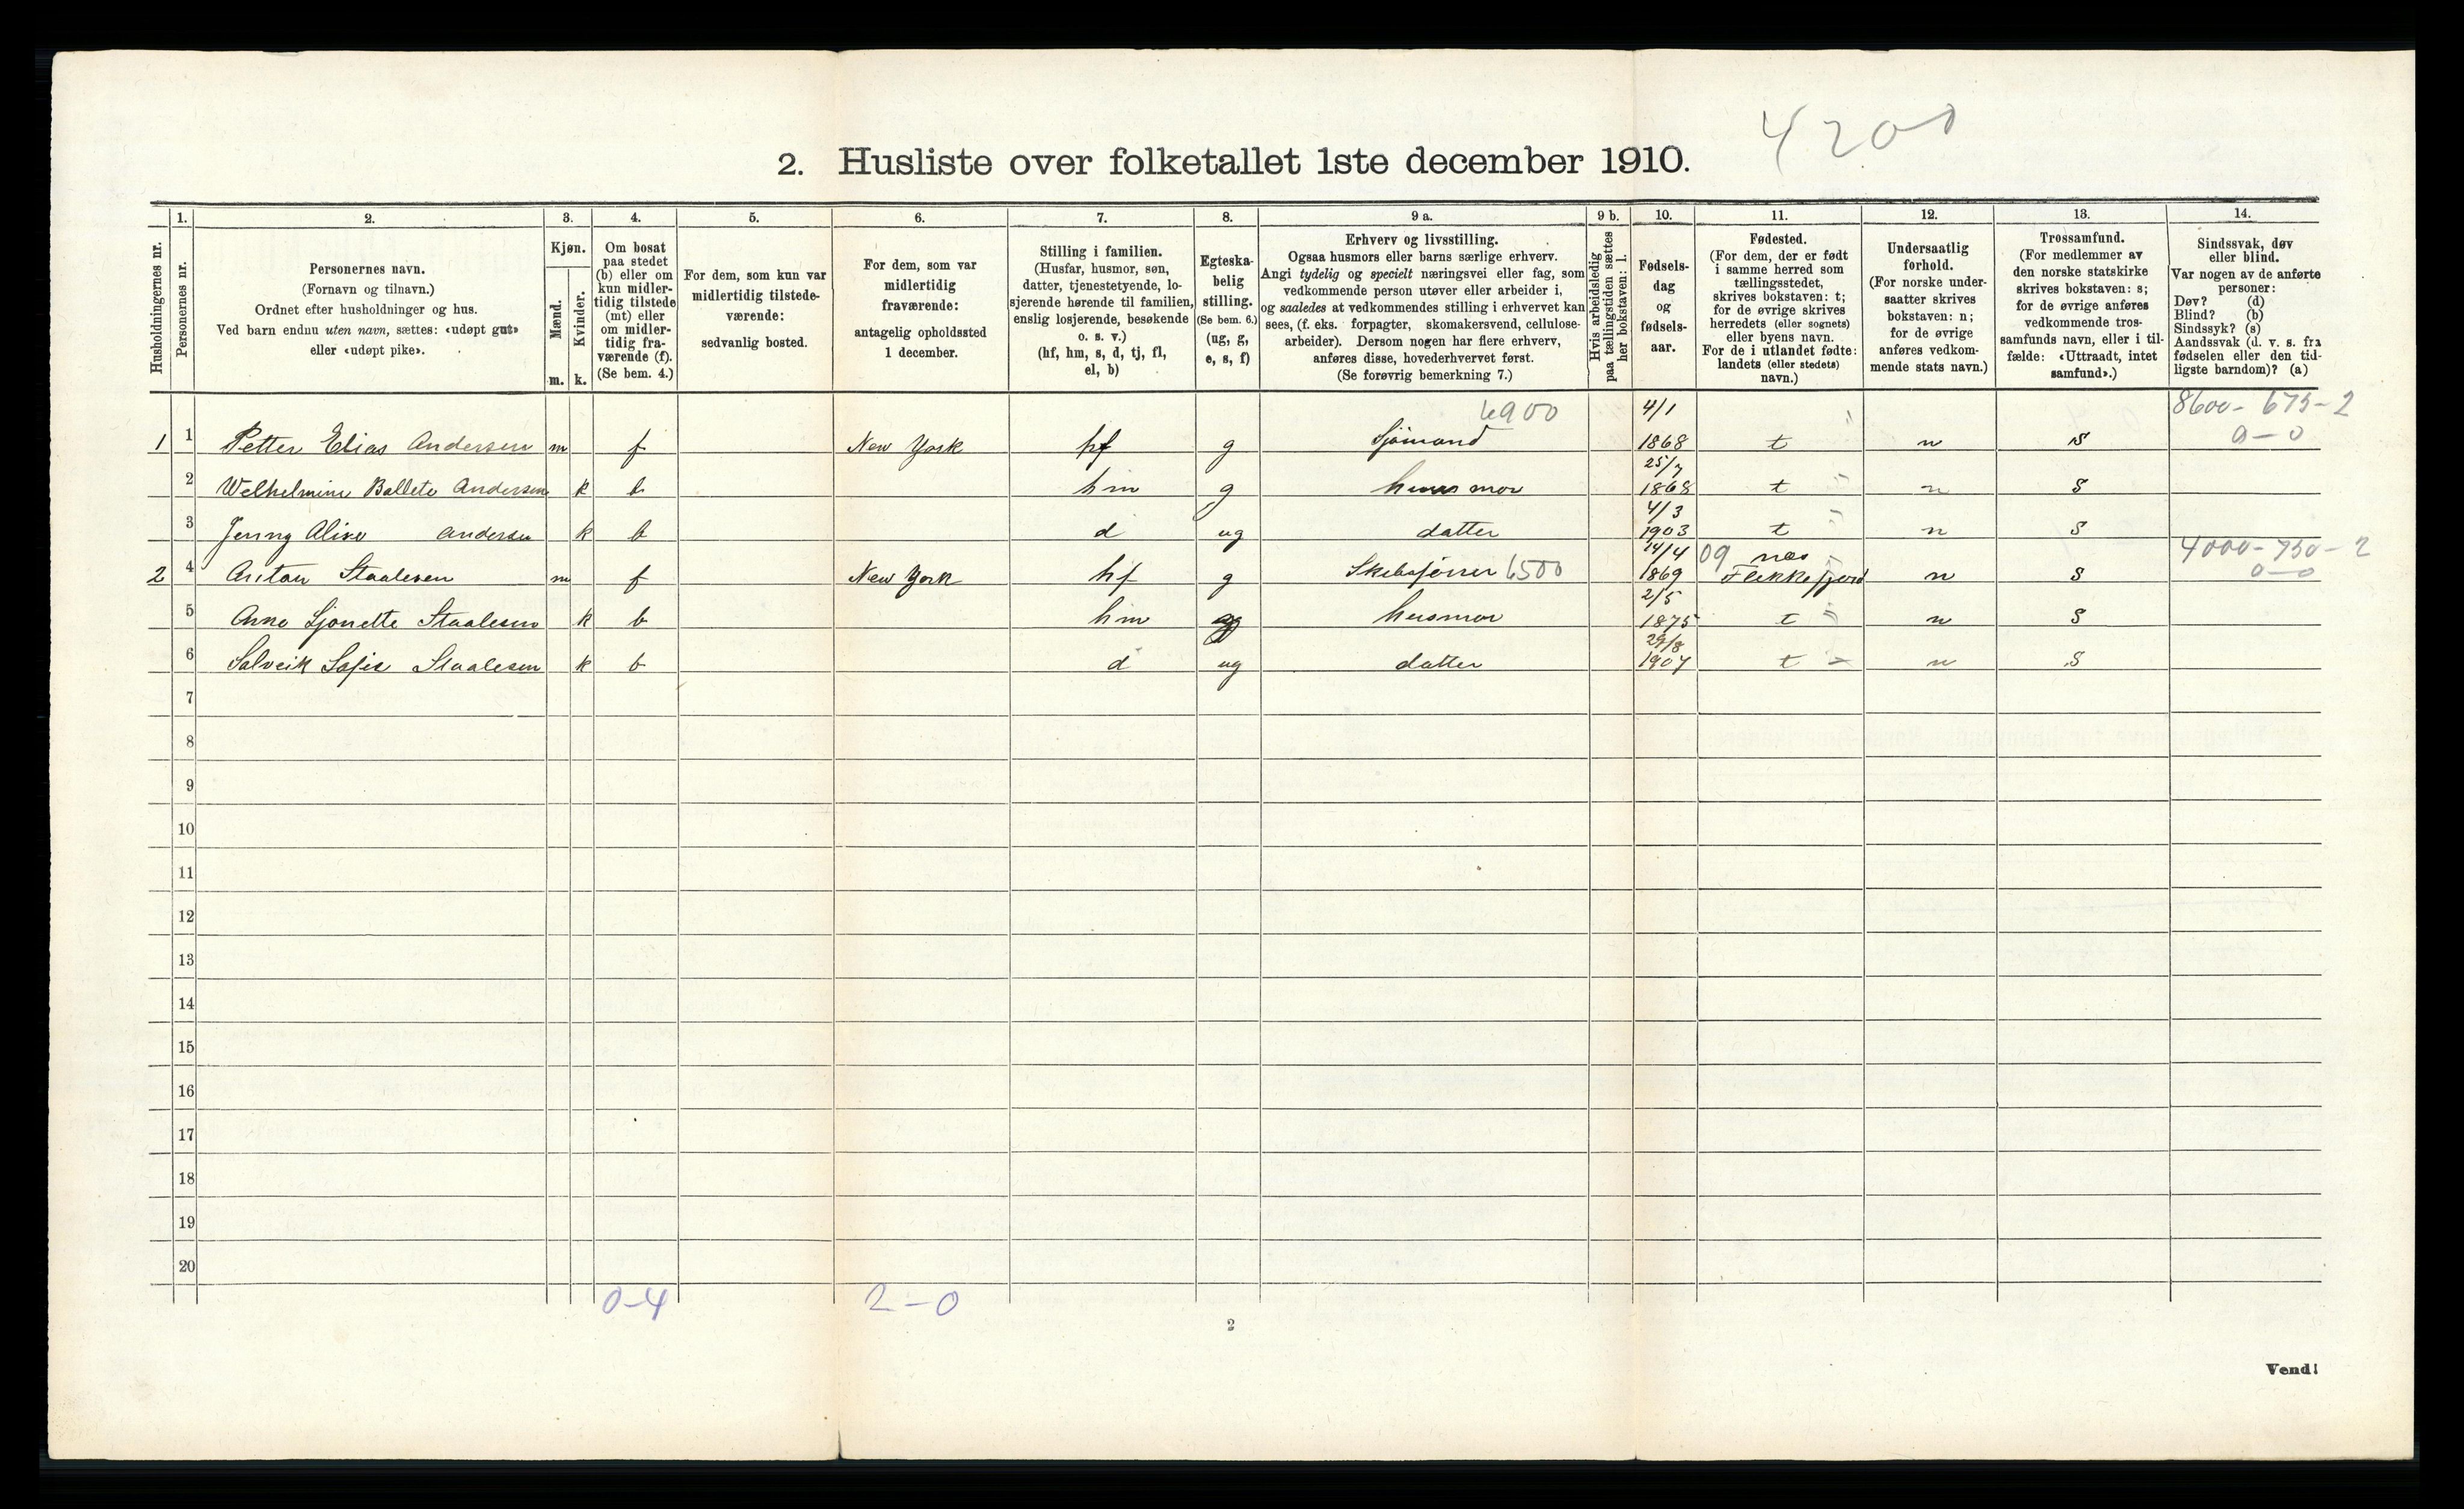 4200
2. Husliste over folketallet 1ste december 1910.
Husholdningernes nr.
1.
Personernes nr.
2.
Personernes navn.
(Fornavn og tilnavn.)
Ordnet efter husholdninger og hus.
Ved barn endnu uten navn, sættes: «udøpt gut»
eller «udøpt pike».
3.
Kjøn.
Mænd.
Kvinder.
m. k.
4.
Om bosat
paa stedet
(b) eller om
kun midler-
tidig tilstede
(mt) eller
om midler-
tidig fra-
værende (f).
(Se bem. 4.)
5.
For dem, som kun var
midlertidig tilstede-
værende:
sedvanlig bosted.
6.
For dem, som var
midlertidig
fraværende:
antagelig opholdssted
1 december.
7.
Stilling i familien.
(Husfar, husmor, søn,
datter, tjenestetyende, lo-
sjerende hørende til familien,
enslig losjerende, besøkende
o. s. v.)
(hf, hm, s, d, tj, fl,
el, b)
8.
Egteska-
belig
stilling.
(Se bem. 6.)
(ug, g,
e, s, f)
9 a.
Erhverv og livsstilling.
Ogsaa husmors eller barns særlige erhverv.
Angi tydelig og specielt næringsvei eller fag, som
vedkommende person utøver eller arbeider i,
og saaledes at vedkommendes stilling i erhvervet kan
sees, (f. eks. forpagter, skomakersvend, cellulose-
arbeider). Dersom nogen har flere erhverv,
anføres disse, hovederhvervet først.
(Se forøvrig bemerkning 7.)
9 b.
Hvis arbeidsledig
paa tællingstiden sættes
her bokstaven: l.
10.
Fødsels-
dag
og
fødsels-
aar.
11.
Fødested.
(For dem, der er født
i samme herred som
tællingsstedet,
skrives bokstaven: t;
for de øvrige skrives
herredets (eller sognets)
eller byens navn.
For de i utlandet fødte:
landets (eller stedets)
navn.)
12.
Undersaatlig
forhold.
(For norske under-
saatter skrives
bokstaven: n;
for de øvrige
anføres vedkom-
mende stats navn.)
13.
Trossamfund.
(For medlemmer av
den norske statskirke
skrives bokstaven: s;
for de øvrige anføres
vedkommende tros-
samfunds navn, eller i til-
fælde: «Uttraadt, intet
samfund».)
14.
Sindssvak, døv
eller blind.
Var nogen av de anførte
personer:
Døv? (d)
Blind? (b)
Sindssyk? (s)
Aandssvak (d. v. s. fra
fødselen eller den tid-
ligste barndom)? (a)
6900 4/1 8600 - 675 - 2
1 1 Petter Elias Andersen m f New York hf g Sjömand 1868 t n s 0 - 0
25/7
2 Welhelmine Ballete Andersen k b hm g husmor 1868 t n s
4/3
3 Jenny Alise Andersen k b d ug datter 1903 t n s
14/4 09 nes 4000 - 750 - 2
2 4 Anton Staalesen m f New York hf g 6500 1869 Flekkefjord n s 0 - 0
2/5
5 Anne Sjonette Staalesen k b hm g husmor 1875 t n s
29/8
6 Solveik Sofie Staalesen k b d ug datter 1907 t n s
7
8
9
10
11
12
13
14
15
16
17
18
19
20
0-4 2-0
2
Vend!